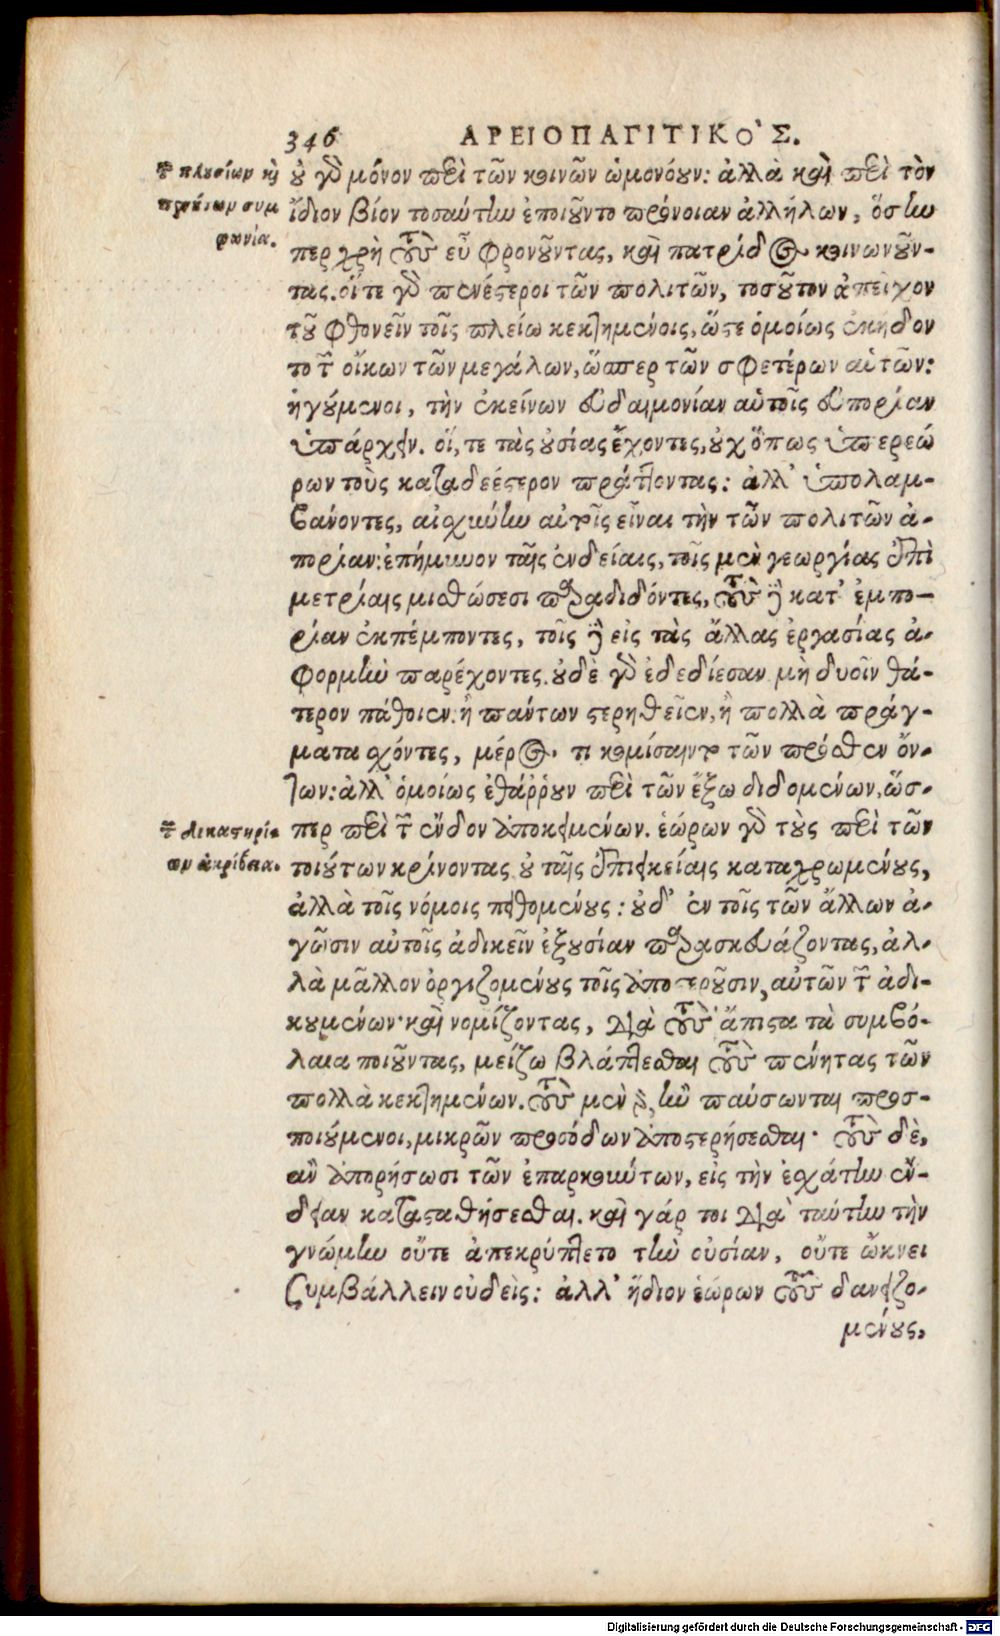 346 ΑΡΕΙΟΠΑΓΙΤΙΚΟ'Σ.
τῶν πλουσίων καὶ
πενήτων συμ
φωνία.
οὐ γὰρ μόνον περὶ τῶν κοινῶν ὡμονόουν: ἀλλὰ καὶ περὶ τὸν
ἴδιον βίον τοσαύτην ἐποιοῦντο πρόνοιαν ἀλλήλων, ὅσην
περ χρὴ τοὺς εὖ φρονοῦντας, καὶ πατρίδος κοινωνοῦν-
τας. οἵ τε γὰρ πενέστεροι τῶν πολιτῶν, τοσοῦτον ἀπεῖχον
τοῦ φθονεῖν τοῖς πλείω κεκτημένοις, ὥστε ὁμοίως ἐκήδον
το τῶν οἴκων τῶν μεγάλων, ὥσπερ τῶν σφετέρων αὐτῶν:
ἡγούμενοι, τὴν ἐκείνων εὐδαιμονίαν αὑτοῖς εὐπορίαν
ὑπάρχειν. οἵ, τε τὰς οὐσίας ἔχοντες, οὐχ ὅπως ὑπερεώ
ρων τοὺς καταδεέστερον πράττοντας: ἀλλ' ὑπολαμ-
βάνοντες, αἰσχύνην αὑτοῖς εἶναι τὴν τῶν πολιτῶν ἀ-
πορίαν: ἐπήμυνον ταῖς ἐνδείαις, τοῖς μὲν γεωργίας ἐπὶ
μετρίαις μισθώσεσι παραδιδόντες, τοὺς δὲ κατ' ἐμπο-
ρίαν ἐκπέμποντες, τοῖς δὲ εἰς τὰς ἄλλας ἐργασίας ἀ-
φορμὴν παρέχοντες. οὐδὲ γὰρ ἐδεδίεσαν μὴ δυοῖν θά-
τερον πάθοιεν: ἢ πάντων στερηθεῖεν, ἢ πολλὰ πράγ-
ματα σχόντες, μέρος τι κομίσαιντο τῶν πρόσθεν ὄν-
των: ἀλλ' ὁμοίως ἐθάῤῥουν περὶ τῶν ἔξω διδομένων, ὥσ-
τῶν δικαστηρί-
ων ἀκρίβεια.
περ περὶ τῶν ἔνδον ἀποκειμένων. ἑώρων γὰρ τοὺς περὶ τῶν
τοιούτων κρίνοντας οὐ ταῖς ἐπιεικείαις καταχρωμένους,
ἀλλὰ τοῖς νόμοις πειθομένους: οὐδ' ἐν τοῖς τῶν ἄλλων ἀ-
γῶσιν αὑτοῖς ἀδικεῖν ἐξουσίαν παρασκευάζοντας, ἀλ-
λὰ μᾶλλον ὀργιζομένους τοῖς ἀποστεροῦσιν, αὐτῶν τῶν ἀδι-
κουμένων· καὶ νομίζοντας, διὰ τοὺς ἄπιστα τὰ συμβό-
λαια ποιοῦντας, μείζω βλάπτεσθαι τοὺς πένητας τῶν
πολλὰ κεκτημένων. τοὺς μὲν γὰρ, ἢν παύσωνται προσ-
ποιούμενοι, μικρῶν προσόδων ἀποστερήσεσθαι· τοὺς δὲ,
ἂν ἀπορήσωσι τῶν ἐπαρκούντων, εἰς τὴν ἐσχάτην ἔν-
δειαν καταστηθήσεσθαι. καὶ γάρ τοι διὰ ταύτην τὴν
γνώμην οὔτε ἀπεκρύπτετο τὴν οὐσίαν, οὔτε ὤκνει
ξυμβάλλειν οὐδεὶς: ἀλλ' ἥδιον ἑώρων τοὺς δανειζο-
μένους,
Digitalisierung gefördert durch die Deutsche Forschungsgemeinschaft - DFG